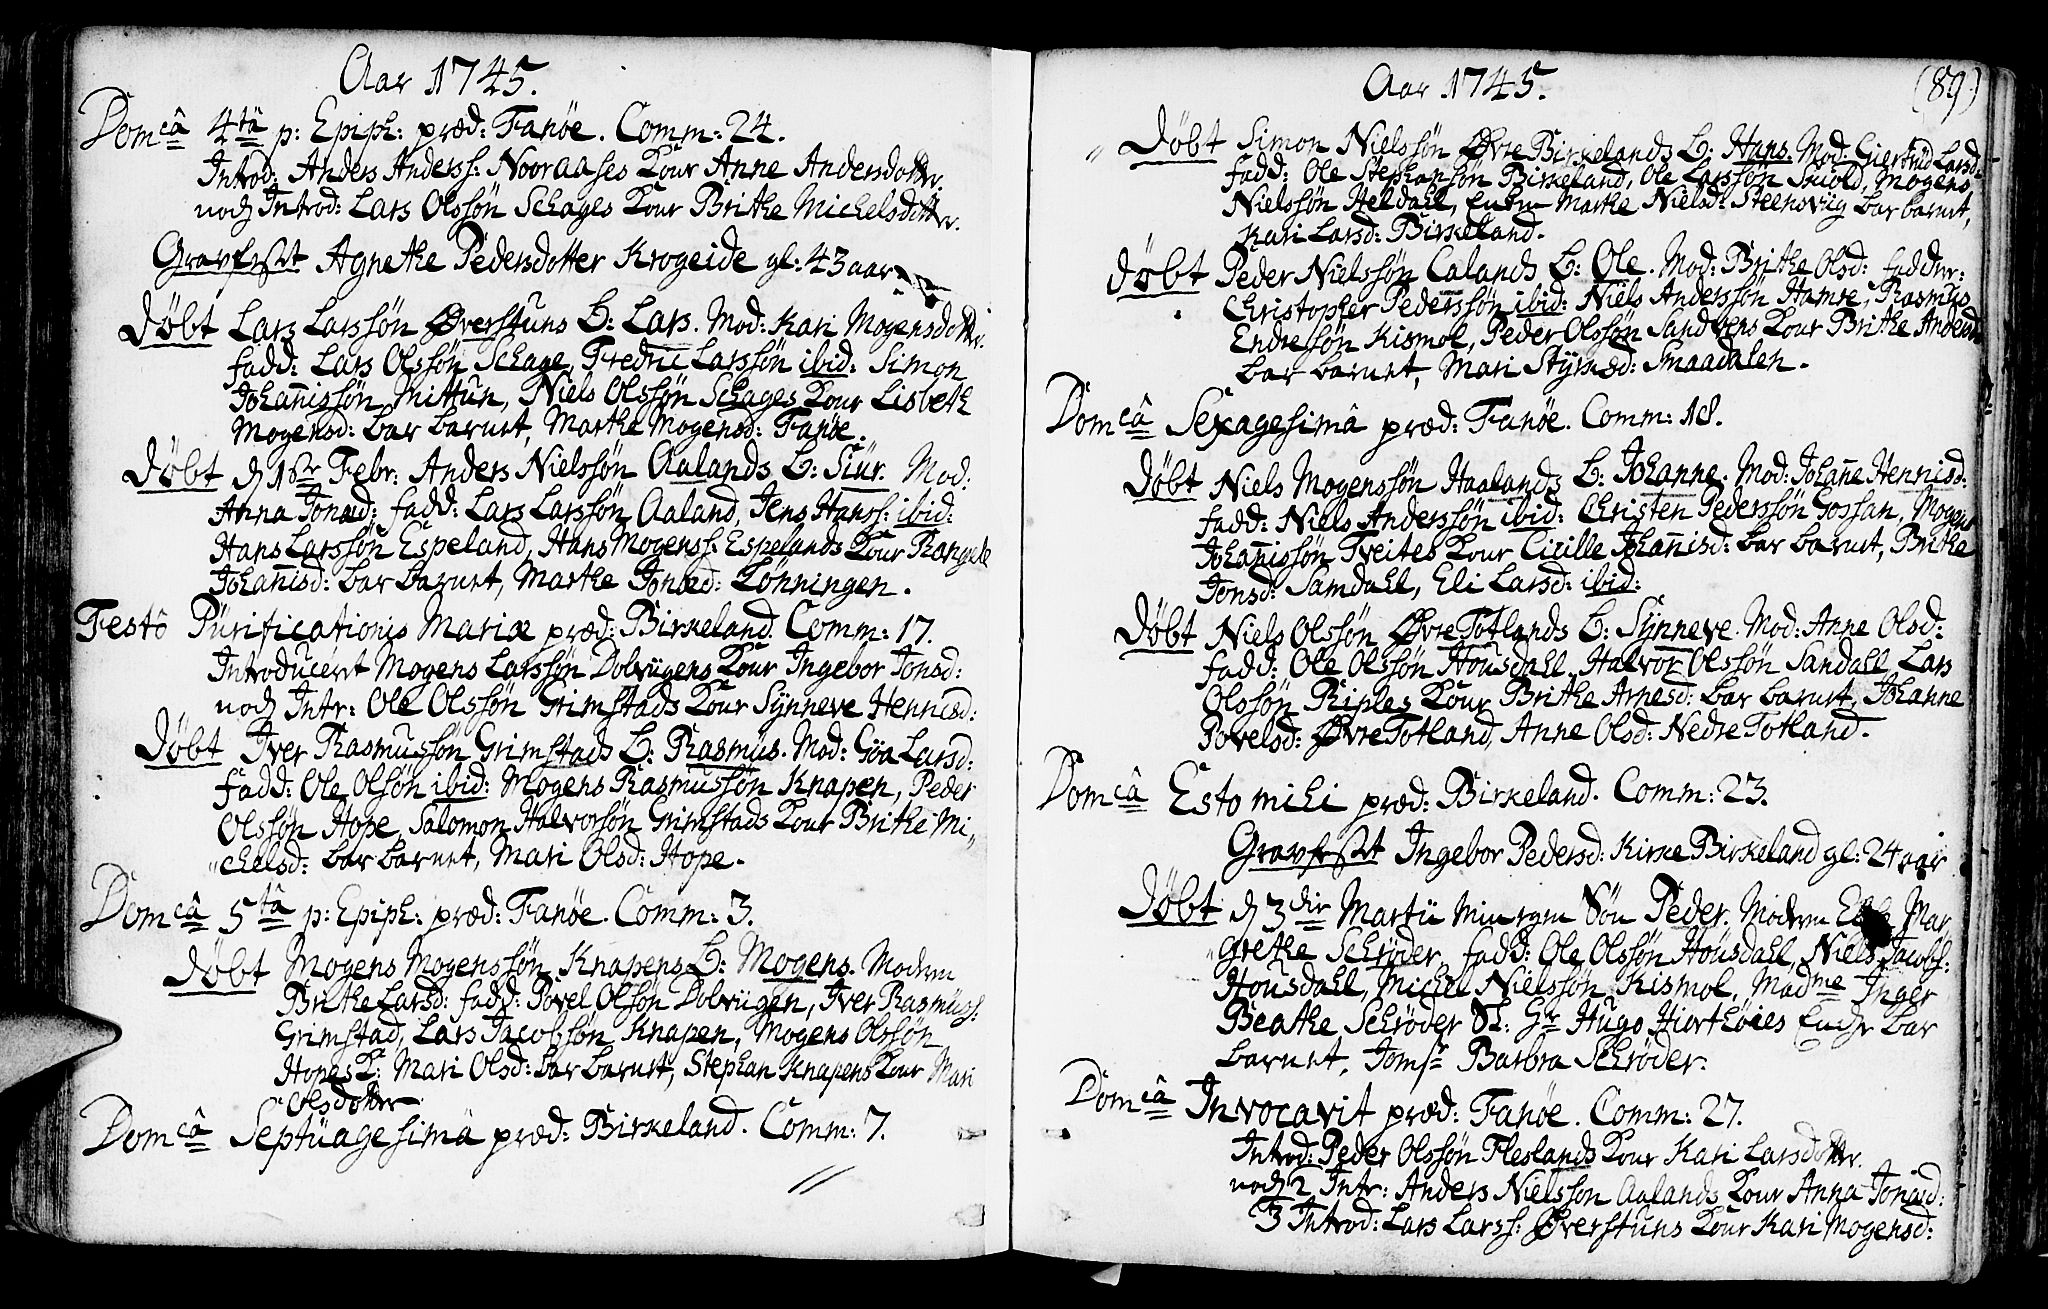 Aar 1745.
Domcâ 4tâ p: Epiph: præd: Fanöe. Comm: 24.
Introd: Anders Anderss: Nooraases Kone Anne Andersdotter.
nock Introd: Lars Olssön Schages Kone Brithe Michelsdotter.
Gravfest Agnethe Pedersdotter Krogeide gl: 43 aar
Döbt Lars Larssön Øverstuns B: Lars. Mod: Kari Mogensdotter.
fadd: Lars Olssön Schage, Fredric Larssön ibid: Simon
Johanissön Mittun, Niels Olssön Schages Kone Lisbeth
Mogensd: bar barnet, Marthe Mogensd: Fanöe.
Döbt d 1ste Febr: Anders Nielssön Aalands B: Siur. Mod:
Anna Jonæd: fadd: Lars Larssön Aaland, Jens Hanss: ibid:
Hans Larssön Espeland, Hans Mogenss: Espelands Kone Rangele
Johanisd: bar barnet, Marthe Jonæd: Lönningen.
Festô Purificationis Mariæ præd: Birkeland. Comm: 17.
Introduceret Mogens Larssön Dolvigens Kone Ingebor Jonsd:
nock Intr: Ole Olssön Grimstads Kone Synneve Hennisd:
Döbt Iver Rasmussön Grimstads B: Rasmus. Mod: Göa Larsd:
fadd: Ole Olsön ibid: Mogens Rasmussön Knapen, Peder
Olssön Hope, Salomon Halvorsön Grimstads Kone Brithe Mi,,
,,chelsd: bar barnet, Mari Olsd: Hope.
Domcâ 5tâ p: Epiph: præd: Fanöe. Comm: 3.
Döbt Mogens Mogenssön Knapens B: Mogens. Moderen
Brithe Larsd: fadd: Povel Olssön Dolvigen, Iver Rasmuss:
Grimstad, Lars Jacobsön Knapen, Mogens Olssön
Hopes K: Mari Olsd: bar barnet, Stephan Knapens Kone Mari
Olsdotter
Domcâ Septuagesimâ præd: Birkeland. Comm: 7.
Aar 1745.
(89)
Döbt Simon Nielssön Øvre Birkelands B: Hans. Mod: Giertrud Larsd:
fadd: Ole Stephansön Birkeland, Ole Larssön Skiold, Mogens
Nielssön Heldahl, Marthe Nielsd: Steensvig bar barnet,
Kari Larsd: Birkeland.
Döbt Peder Nielssön Calands B: Ole. Mod: Brithe Olsd: faddere:
Christopher Pederssön ibid: Niels Anderssön Hamre, Rasmus
Endressön Kismol, Peder Olssön Sandvens Kone Brithe Andersd:
bar barnet, Mari Smaadalen.
Domcâ Sexagesimâ præd: Fanöe. Comm: 18.
Döbt Niels Mogenssön Haalands B: Johanne. Mod: Johanne Hennisd:
fadd: Niels Anderssön ibid: Christen Pederssön Gossan, Mogens
Johanissön Tveites Kone Cicille Johanisd: bar barnet, Brithe
Jonsd: Samdahl, Eli Larsd: ibid:
Döbt Niels Olssön Øvre Totlands B: Synneve. Mod: Anne Olsd:
fadd: Ole Olssön Housdahl, Halvor Olssön Sandahl, Lars
Olssön Riples Kone Brithe Arnesd: bar barnet, Johanne
Povelsd: Øvre Totland, Anne Olsd: Nedre Totland.
Domcâ Esto mihi præd: Birkeland. Comm: 23.
Gravfest Ingebor Pedersd: Kirke Birkeland gl: 24 aar
Döbt d 3die Martii min egen Sön Peder. Moderen Mar,
,,grethe Schröder, fadd: Ole Olssön Housdahl, Niels Jacobs:
Housdahl, Michel Nielssön Kismol, Madme Inger
Beathe Schröder Sl: Hr Hugo Hiorthöies bar
barnet, Jomfr Barbra Schröder.
Domcâ Invocavit præd: Fanöe. Comm: 27.
Introd: Peder Olssön Fleslands Kone Kari Larsdotter.
nock 2 Intr: Anders Nielssön Aalands Kone Anna Jonæd:
3 Introd: Lars Larss: Øverstuns Kone Kari Mogensd: